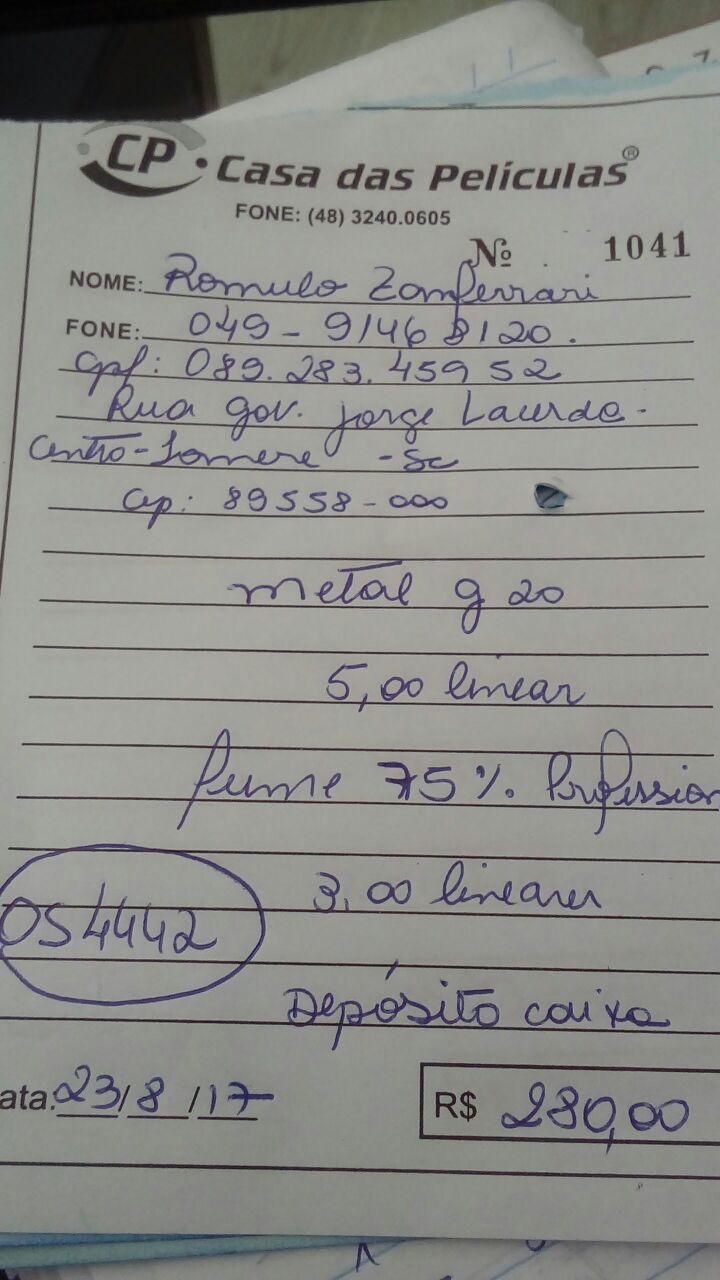 CP · Casa das Películas®
FONE: (48) 3240.0605
Nº 1041
NOME: Romulo Zamferrari
FONE: 049 - 9146 8120.
Cpf: 089.283.459 52
Rua gov. jorge Lacerda.
Centro - Iomere - SC
Cep: 89558-000
metal g 20
5,00 linear
fume 75%. Profession
3,00 lineares
OS 4442
Depósito caixa
ata: 23/8/17
R$ 280,00